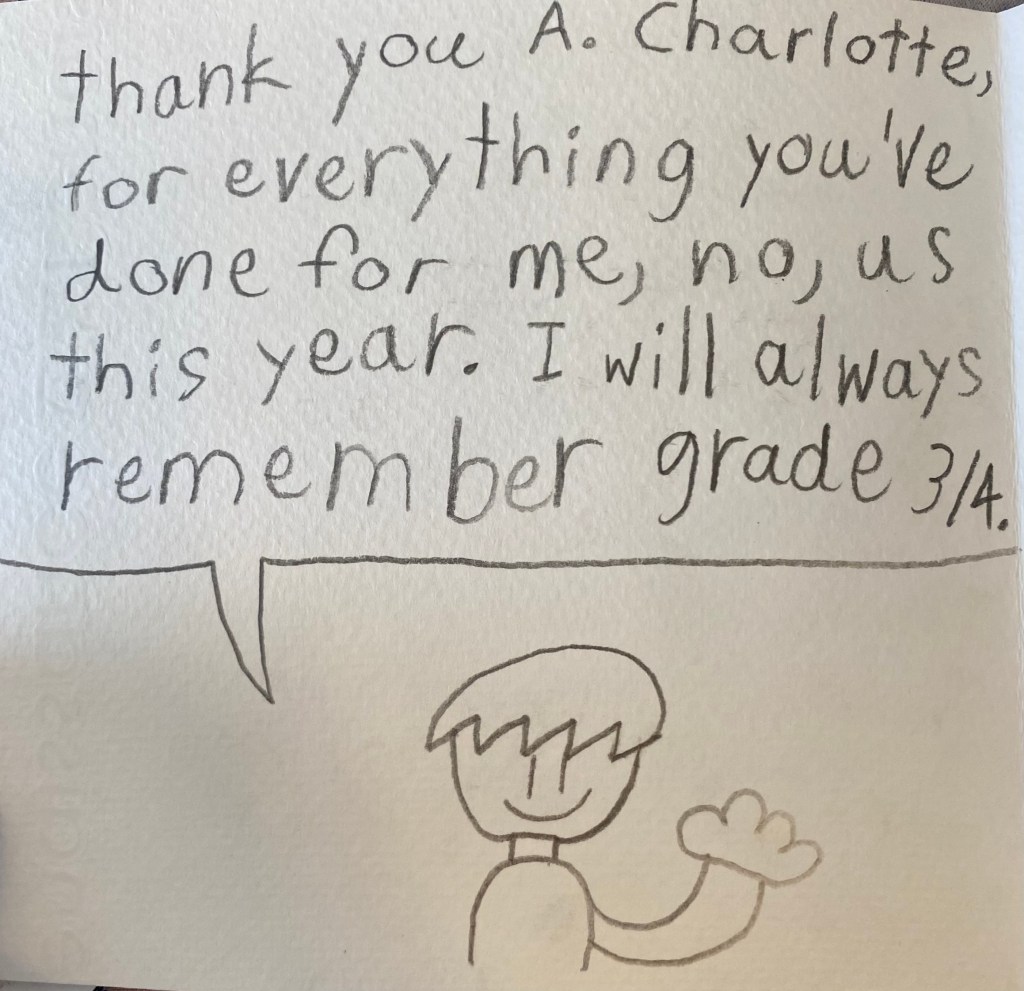 thank you A. Charlotte,
for everything you've
done for me, no, us
this year. I will always
remember grade 3/4.